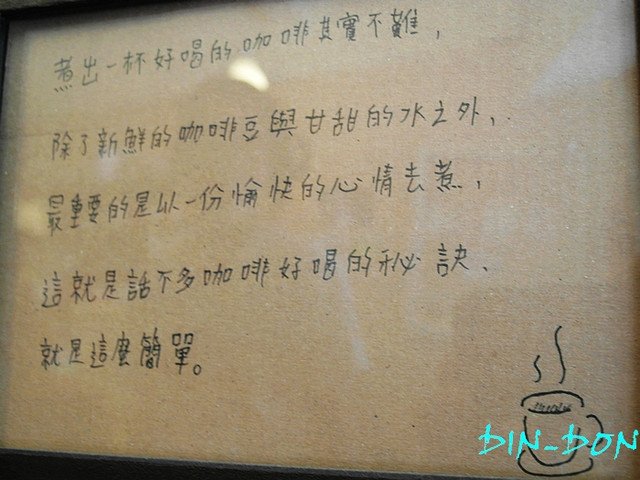 煮出一杯好喝的咖啡其實不難，
除了新鮮的咖啡豆與甘甜的水之外，
最重要的是以一份愉快的心情去煮，
這就是話不多咖啡好喝的秘訣、
就是這麼簡單。
DIN-DON